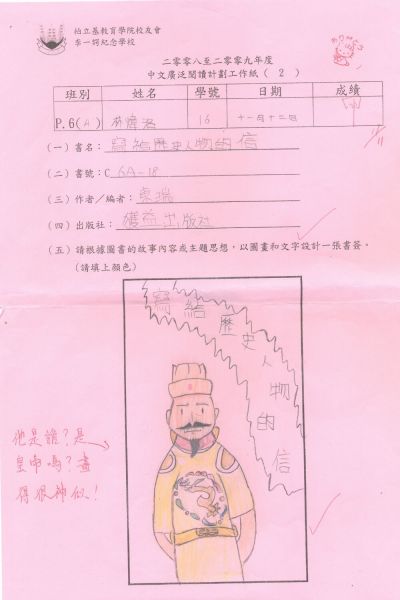 柏立基教育學院校友會
李一諤紀念學校
二零零八至二零零九年度
中文廣泛閱讀計劃工作紙（2）
班別 姓名 學號 日期 成績
P.6(A) 16 十一月十二日
（一）書名：寫給歷史人物的信
（二）書號：C 6A-18
（三）作者／編者：東瑞
（四）出版社：獲益出版社
（五）請根據圖書的故事內容或主題思想，以圖畫和文字設計一張書簽。
（請填上顏色）
寫給歷史人物的信
他是誰？是
皇帝嗎？畫
得很神似！